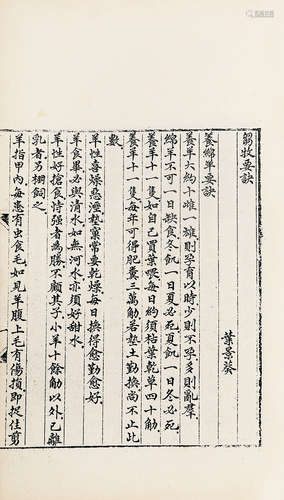 芻牧要訣
葉景葵
養綿羊要訣
養羊大約十雌一雄則孕育以時少則不孕多則亂羣
綿羊不可一日缺食冬飢一日夏必死夏飢一日冬必死
養羊十一隻如自己買葉喂每日約須枯葉乾草四十觔
養羊十一隻每年可得肥糞三萬觔若墊土勤換尚不止此
數
羊性喜燥惡溼墊窠常要乾燥每日換得愈勤愈好
羊食畢必與清水如無河水亦須好甜水
羊性好搶食恃强者為勝不顧其子小羊十餘觔以外已離
乳者另棚飼之
羊指甲內每患有虫食毛如見羊腹上毛有傷損即捉住剪